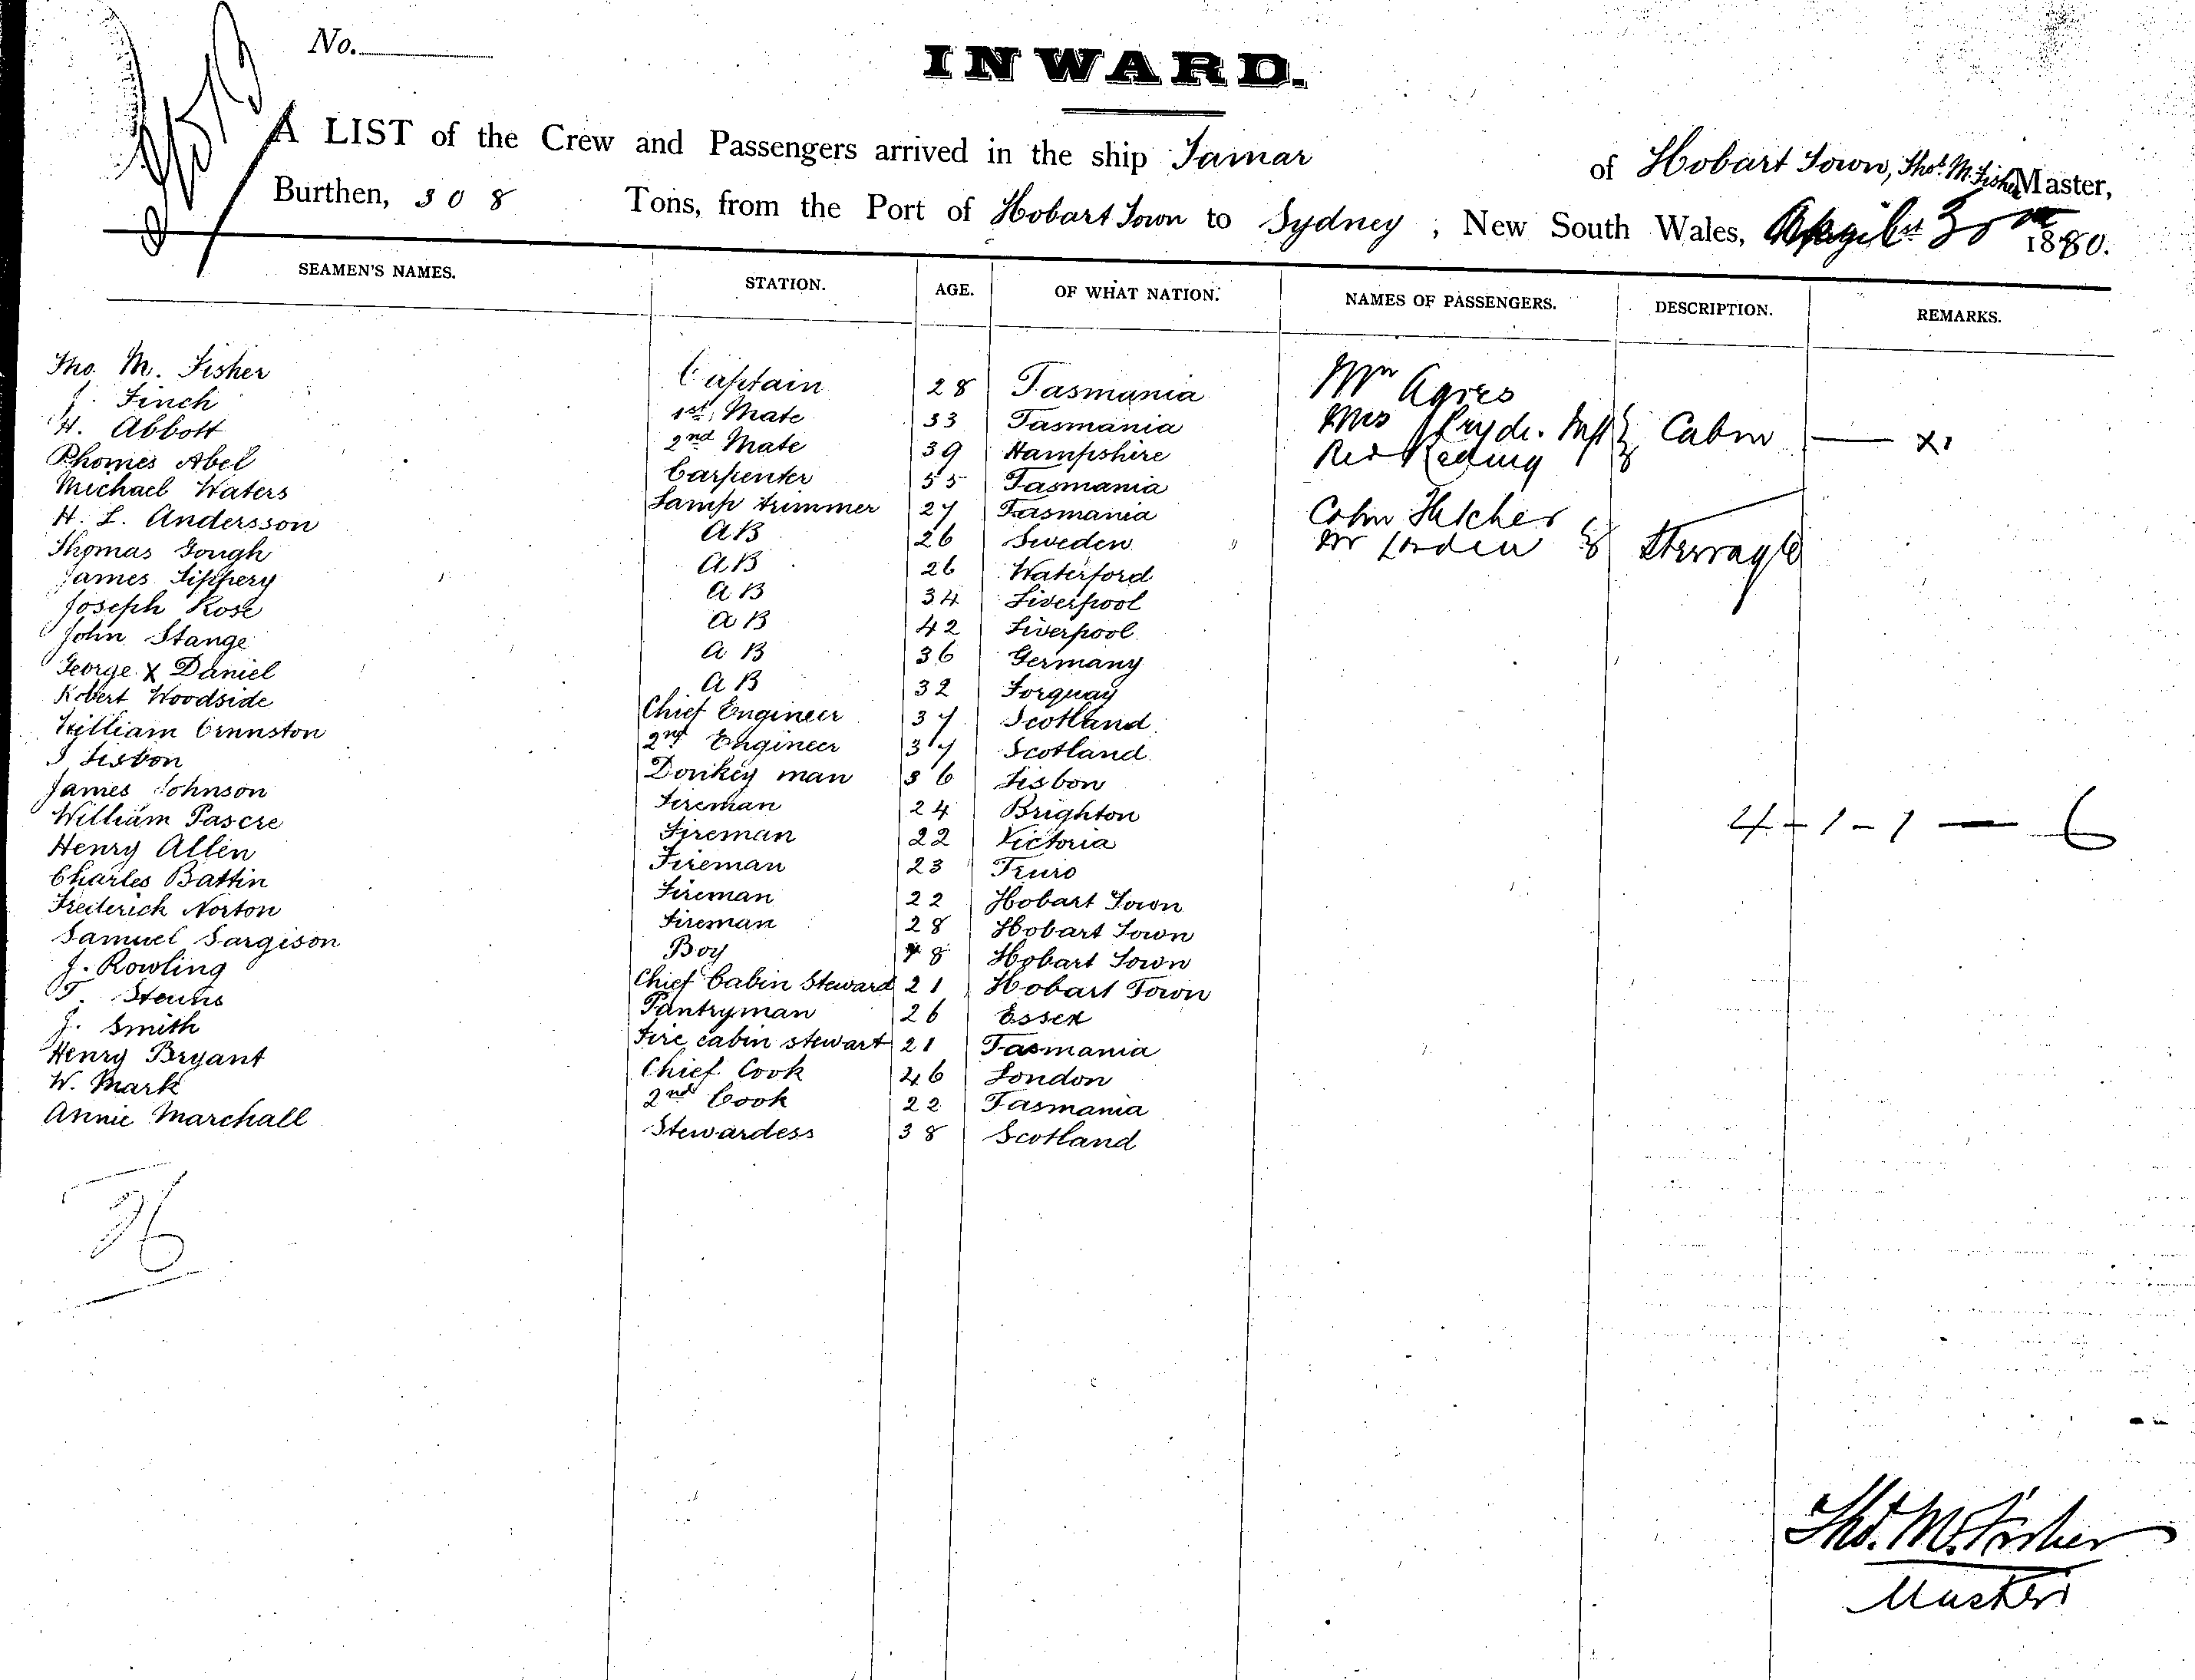 No.
INWARD.
A LIST of the Crew and Passengers arrived in the ship Tamar of Hobart Town, Thos. M. Fisher Master,
Burthen, 308 Tons, from the Port of Hobart Town to Sydney, New South Wales, 1880.
SEAMEN'S NAMES. STATION. AGE. OF WHAT NATION. NAMES OF PASSENGERS. DESCRIPTION. REMARKS.
Tho. M. Fisher Captain 28 Tasmania Mrs
J. Finch 1st Mate 33 Tasmania Mrs
H. Abbott 2nd Mate 39 Hampshire Cabin x
Abel Carpenter 55 Tasmania
Michael Waters Lamp trimmer 27 Tasmania
H. L. Andersson AB 26 Sweden
Thomas Gough AB 26 Waterford Steerage
James Lippery AB 34 Liverpool
Joseph Rose AB 42 Liverpool
John Stange AB 36 Germany
George X Daniel AB 32 Torquay
Robert Woodside Chief Engineer 37 Scotland
William 2nd Engineer 37 Scotland
Lisbon Donkey man 36 Lisbon
James Johnson Fireman 24 Brighton
William Pascre Fireman 22 Victoria 4 - 1 - 1 — 6
Henry Allen Fireman 23 Truro
Charles Battin Fireman 22 Hobart Town
Frederick Norton Fireman 28 Hobart Town
Samuel Sargison Boy 18 Hobart Town
J. Rowling Chief Cabin Steward 21 Hobart Town
T. Pantryman 26 Essex
J. Smith Fire cabin stewart 21 Tasmania
Henry Bryant Chief Cook 46 London
W. Mark 2nd Cook 22 Tasmania
Annie Marchall Stewardess 38 Scotland
26
Thos. M. Fisher
Master